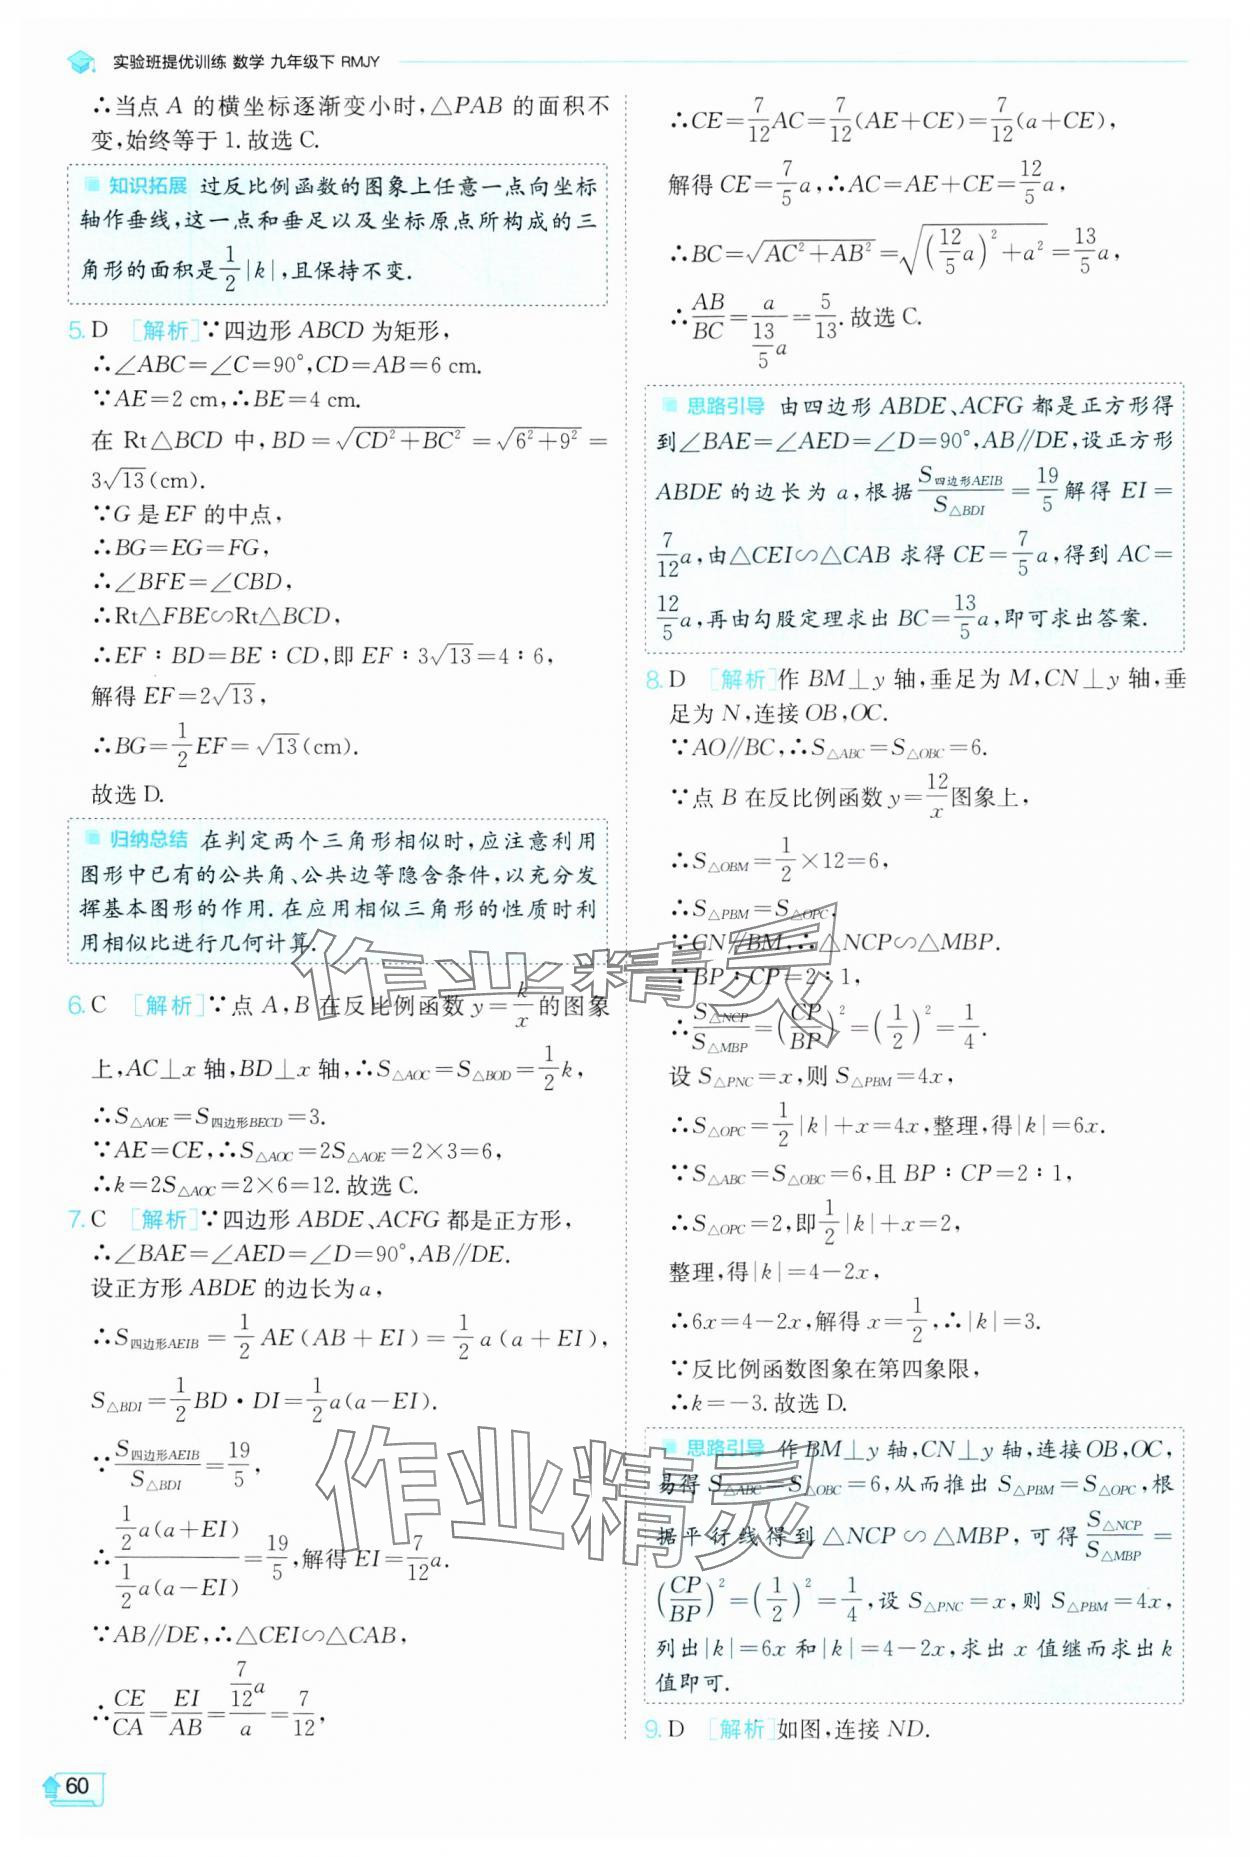 实验班提优训练 数学 九年级下 RMJY
∴当点 A 的横坐标逐渐变小时,△PAB 的面积不
变,始终等于 1. 故选 C.
知识拓展 过反比例函数的图象上任意一点向坐标
轴作垂线,这一点和垂足以及坐标原点所构成的三
角形的面积是 1/2|k|,且保持不变.
5. D [解析]∵四边形 ABCD 为矩形,
∴∠ABC=∠C=90°,CD=AB=6 cm.
∵AE=2 cm,∴BE=4 cm.
在 Rt△BCD 中,BD=√(CD²+BC²)=√(6²+9²)=
3√13(cm).
∵G 是 EF 的中点,
∴BG=EG=FG,
∴∠BFE=∠CBD,
∴Rt△FBE∽Rt△BCD,
∴EF∶BD=BE∶CD,即 EF∶3√13=4∶6,
解得 EF=2√13,
∴BG=1/2 EF=√13(cm).
故选 D.
归纳总结 在判定两个三角形相似时,应注意利用
图形中已有的公共角、公共边等隐含条件,以充分发
挥基本图形的作用. 在应用相似三角形的性质时利
用相似比进行几何计算.
6. C [解析]∵点 A,B 在反比例函数 y=k/x 的图象
上,AC⊥x 轴,BD⊥x 轴,∴S△AOC=S△BOD=1/2 k,
∴S△AOE=S四边形BECD=3.
∵AE=CE,∴S△AOC=2S△AOE=2×3=6,
∴k=2S△AOC=2×6=12. 故选 C.
7. C [解析]∵四边形 ABDE、ACFG 都是正方形,
∴∠BAE=∠AED=∠D=90°,AB∥DE.
设正方形 ABDE 的边长为 a,
∴S四边形AEIB=1/2 AE(AB+EI)=1/2 a(a+EI),
S△BDI=1/2 BD·DI=1/2 a(a-EI).
∵S四边形AEIB/S△BDI=19/5,
∴(1/2 a(a+EI))/(1/2 a(a-EI))=19/5,解得 EI=7/12 a.
∵AB∥DE,∴△CEI∽△CAB,
∴CE/CA=EI/AB=(7/12 a)/a=7/12,
60
∴CE=7/12 AC=7/12(AE+CE)=7/12(a+CE),
解得 CE=7/5 a,∴AC=AE+CE=12/5 a,
∴BC=√(AC²+AB²)=√((12/5 a)²+a²)=13/5 a,
∴AB/BC=a/(13/5 a)=5/13. 故选 C.
思路引导 由四边形 ABDE、ACFG 都是正方形得
到∠BAE=∠AED=∠D=90°,AB∥DE,设正方形
ABDE 的边长为 a,根据 S四边形AEIB/S△BDI=19/5 解得 EI=
7/12 a,由△CEI∽△CAB 求得 CE=7/5 a,得到 AC=
12/5 a,再由勾股定理求出 BC=13/5 a,即可求出答案.
8. D [解析]作 BM⊥y 轴,垂足为 M,CN⊥y 轴,垂
足为 N,连接 OB,OC.
∵AO∥BC,∴S△ABC=S△OBC=6.
∵点 B 在反比例函数 y=12/x 图象上,
∴S△OBM=1/2×12=6,
∴S△PBM=S△OPC.
∵CN∥BM,∴△NCP∽△MBP.
∵BP∶CP=2∶1,
∴S△NCP/S△MBP=(CP/BP)²=(1/2)²=1/4.
设 S△PNC=x,则 S△PBM=4x,
∴S△OPC=1/2|k|+x=4x,整理,得|k|=6x.
∵S△ABC=S△OBC=6,且 BP∶CP=2∶1,
∴S△OPC=2,即 1/2|k|+x=2,
整理,得|k|=4-2x,
∴6x=4-2x,解得 x=1/2,∴|k|=3.
∵反比例函数图象在第四象限,
∴k=-3. 故选 D.
思路引导 作 BM⊥y 轴,CN⊥y 轴,连接 OB,OC,
易得 S△ABC=S△OBC=6,从而推出 S△PBM=S△OPC,根
据平行线得到△NCP∽△MBP,可得 S△NCP/S△MBP=
(CP/BP)²=(1/2)²=1/4,设 S△PNC=x,则 S△PBM=4x,
列出|k|=6x 和|k|=4-2x,求出 x 值继而求出 k
值即可.
9. D [解析]如图,连接 ND.
作业精灵
作业精灵